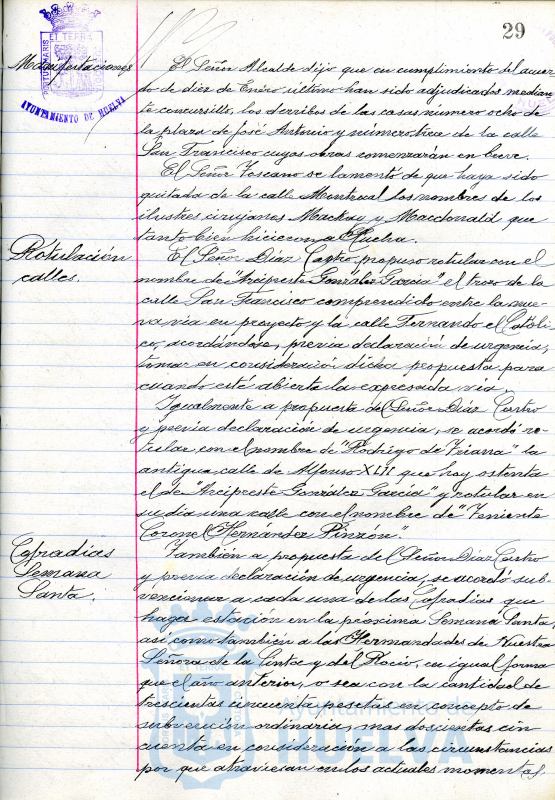 29
PORTUS MARIS ET TERRAE CUSTODIA
AYUNTAMIENTO DE HUELVA
Manifestaciones
El Señor Alcalde dijo que en cumplimiento del acuer-
do de diez de Enero último han sido adjudicados median-
te concursillo, los derribos de las casas número ocho de
la plaza de José Antonio y número trece de la calle
San Francisco cuyas obras comenzarán en breve.
El Señor Toscano se lamentó de que haya sido
quitada de la calle Montreal los nombres de los
ilustres cirujanos Mackay y Macdonald que
tanto bien hicieron a Huelva.
Rotulación
calles.
El Señor Díaz Castro, propuso rotular con el
nombre de "Arcipreste González García" el trozo de la
calle San Francisco comprendido entre la nue-
va vía en proyecto y la calle Fernando el Católi-
co, acordándose, previa declaración de urgencia,
tomar en consideración dicha propuesta para
cuando esté abierta la expresada vía.
Igualmente a propuesta del Señor Díaz Castro
y previa declaración de urgencia, se acordó ro-
tular, con el nombre de "Rodrigo de Triana" la
antigua calle de Alfonso XIII que hoy ostenta
el de "Arcipreste González García" y rotular en
su día una calle con el nombre de "Teniente
Coronel Hernández Pinzón".
Cofradías
Semana
Santa.
También a propuesta del Señor Díaz Castro
y previa declaración de urgencia, se acordó sub-
vencionar a cada una de las Cofradías que
hagan estación en la próxima Semana Santa,
así como también a las Hermandades de Nuestra
Señora de la Cinta y del Rocío, en igual forma
que el año anterior, o sea con la cantidad de
trescientas cincuenta pesetas en concepto de
subvención ordinaria, mas doscientas cin
cuenta en consideración a las circunstancias
por que atraviesan en los actuales momentos.
Ayuntamiento de
HUELVA